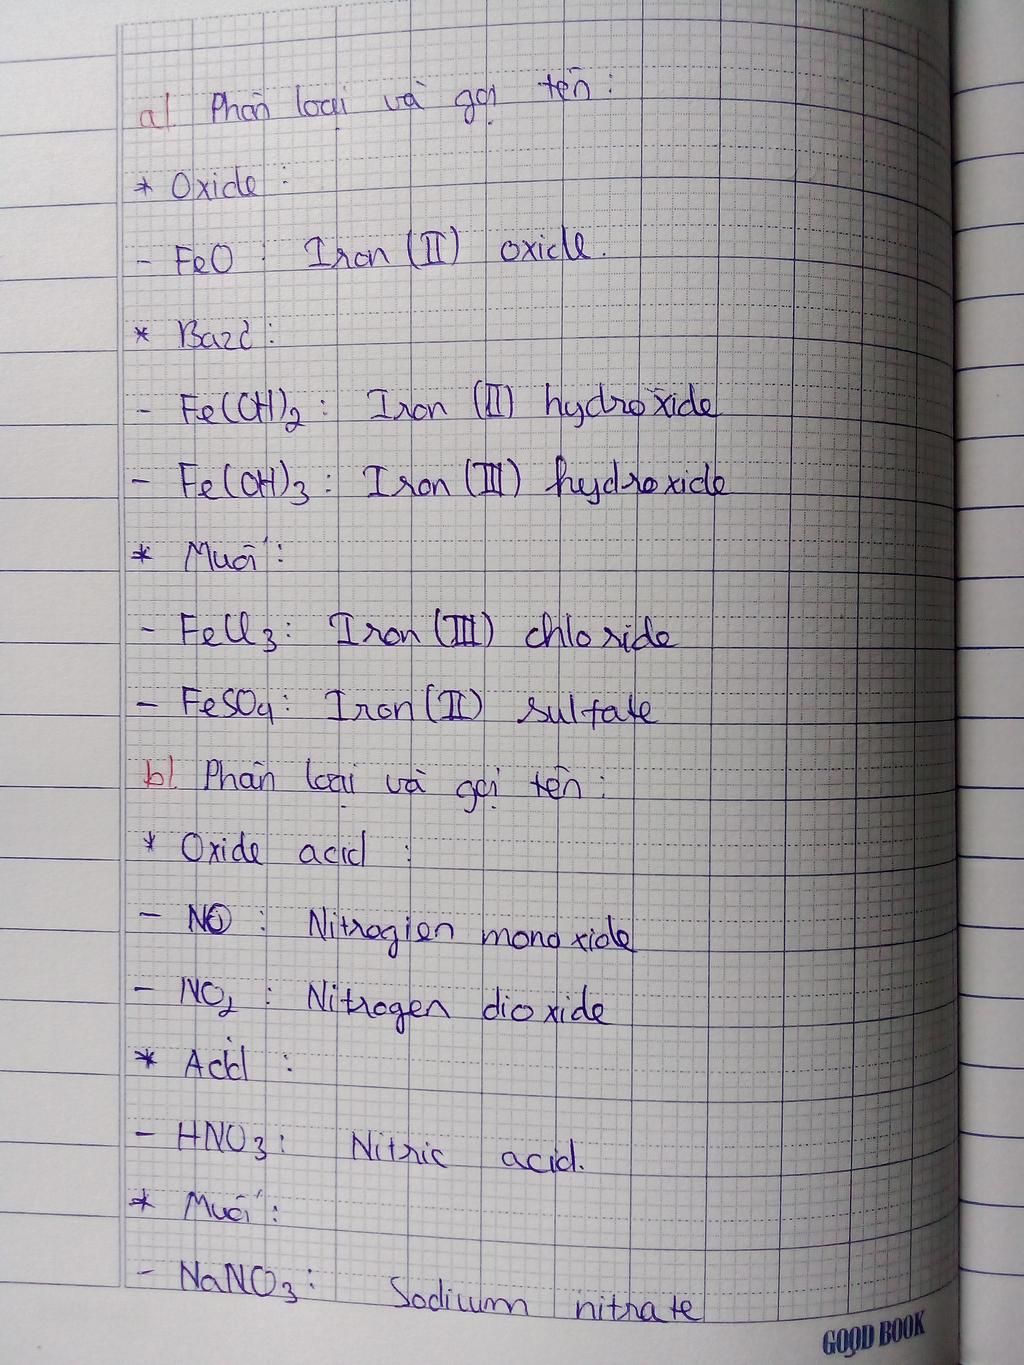 a) Phân loại và gọi tên :
* Oxide :
- FeO : Iron (II) oxide.
* Bazơ :
- Fe(OH)2 : Iron (II) hydroxide
- Fe(OH)3 : Iron (III) hydroxide
* Muối :
- FeCl3 : Iron (III) chloride
- FeSO4 : Iron (II) sulfate
b) Phân loại và gọi tên :
* Oxide acid :
- NO : Nitrogien monoxide
- NO2 : Nitrogen dioxide
* Acid :
- HNO3 : Nitric acid.
* Muối :
- NaNO3 : Sodium nitrate
GOOD BOOK